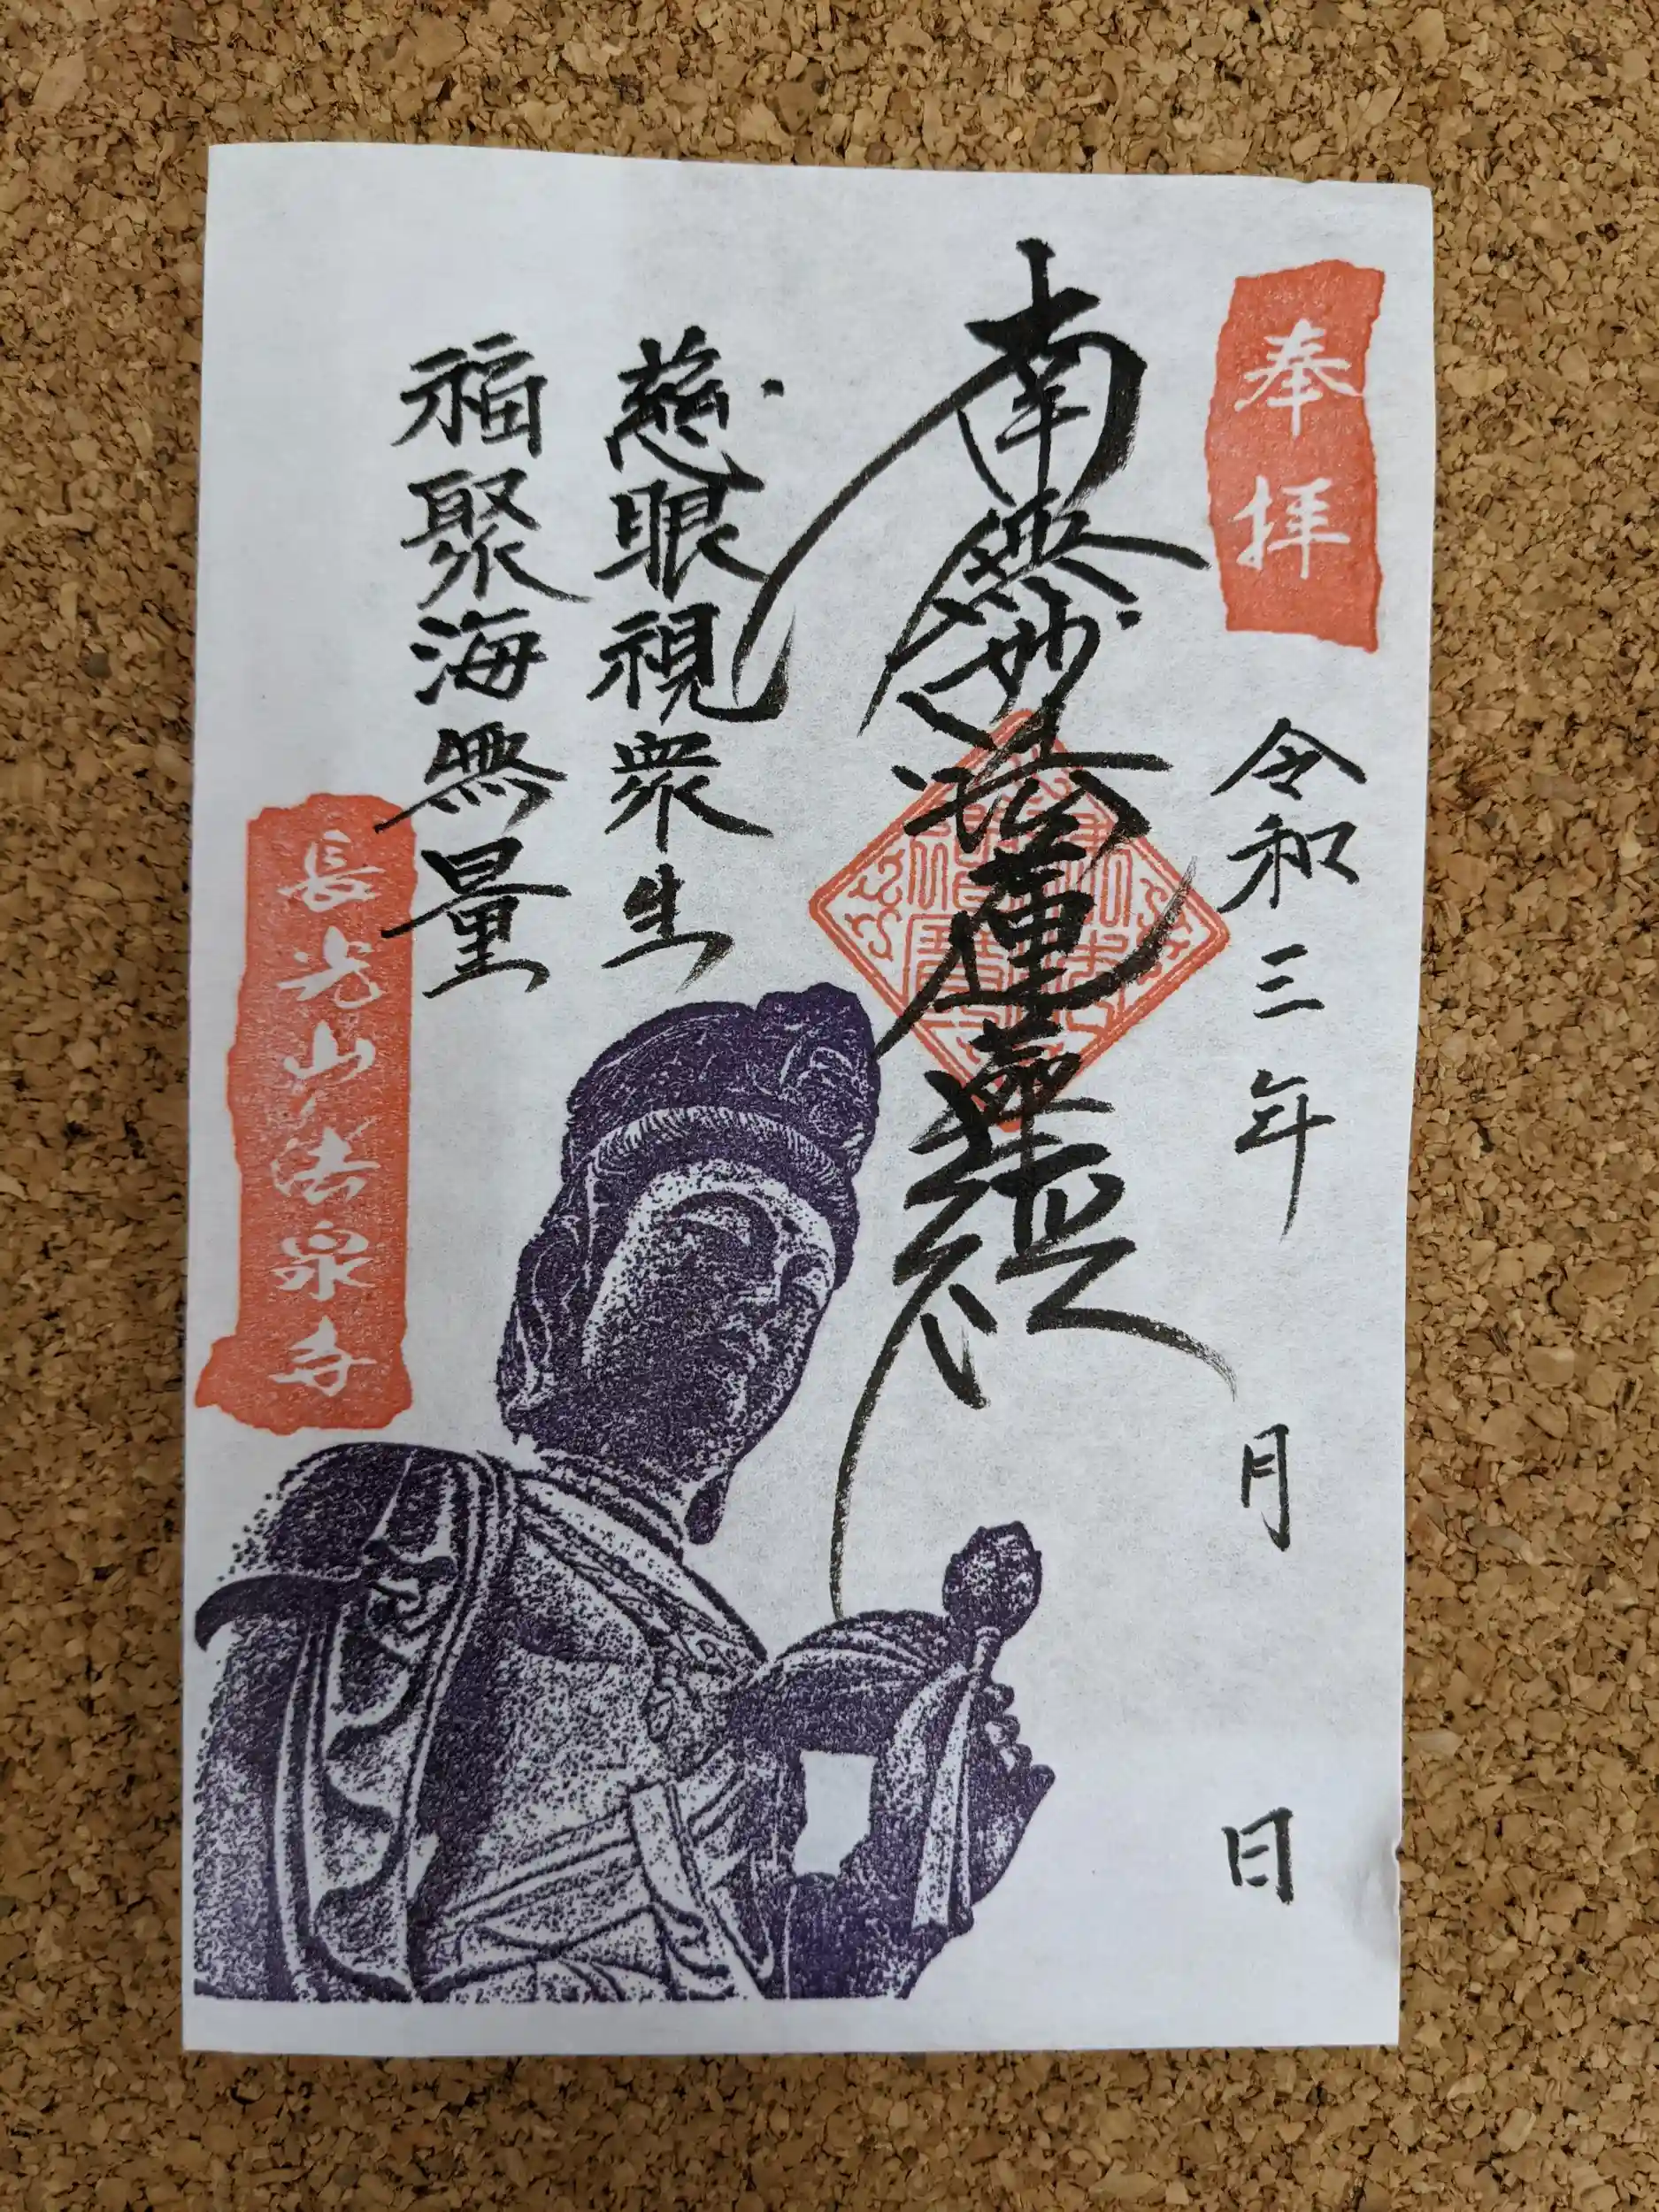 奉拝
令和三年 月 日
南無妙法蓮華経
慈眼視衆生
福聚海無量
長光山法泉寺